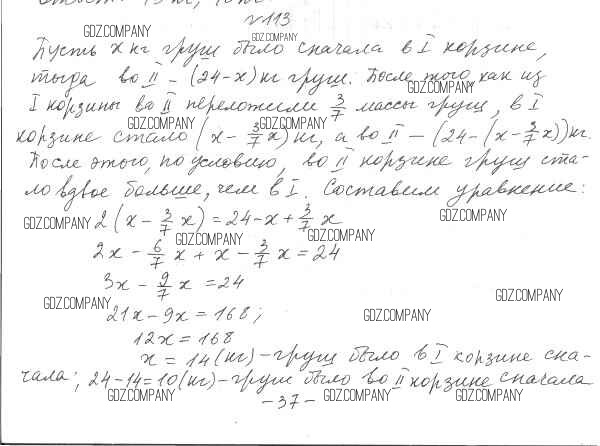 №113
GDZ.COMPANY GDZ.COMPANY
Пусть x кг груш было сначала в I корзине,
тогда во II – (24-x) кг груш. После того, как из
GDZ.COMPANY
I корзины во II переложили 3/7 массы груш, в I
GDZ.COMPANY GDZ.COMPANY
корзине стало (x - 3/7 x) кг, а во II – (24-(x-3/7 x)) кг.
После этого, по условию, во II корзине груш ста-
ло вдвое больше, чем в I. Составим уравнение:
GDZ.COMPANY GDZ.COMPANY
2(x - 3/7 x) = 24-x+3/7 x
GDZ.COMPANY GDZ.COMPANY
2x - 6/7 x + x - 3/7 x = 24
3x - 9/7 x = 24
GDZ.COMPANY GDZ.COMPANY
21x - 9x = 168;
GDZ.COMPANY
12x = 168
x = 14 (кг) – груш было в I корзине сна-
чала; 24-14=10 (кг) – груш было во II корзине сначала
GDZ.COMPANY GDZ.COMPANY GDZ.COMPANY
-37-